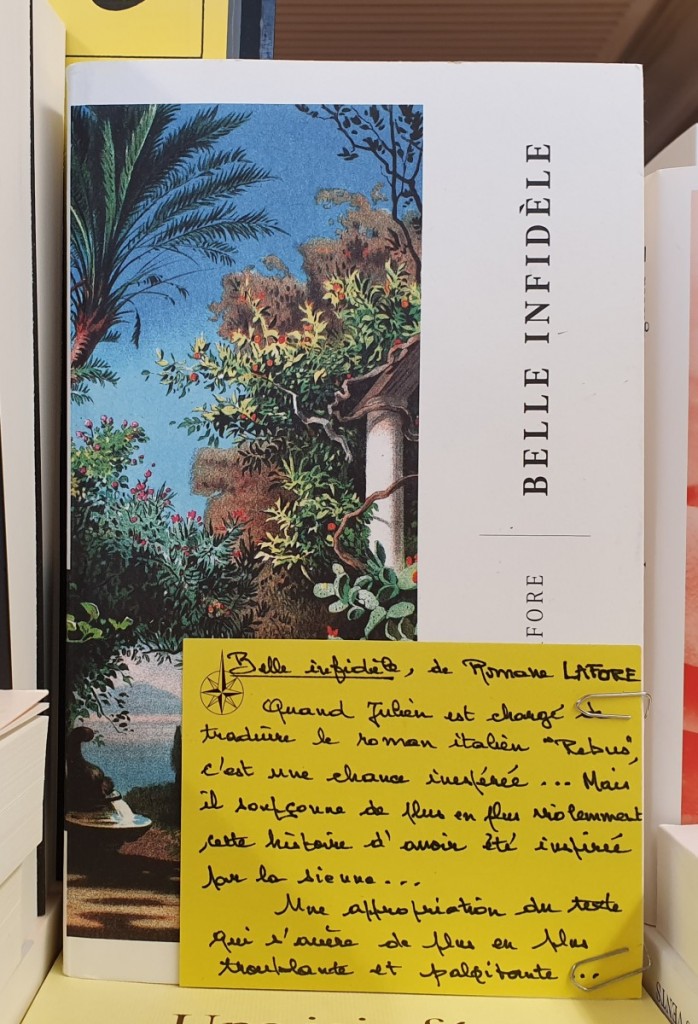 BELLE INFIDÈLE
AFORE
Belle infidèle, de Romane LAFORE
Quand Julien est chargé de
traduire le roman italien "Rebus",
c'est une chance inespérée ... Mais
il soupçonne de plus en plus violemment
cette histoire d'avoir été inspirée
par la sienne...
Une appropriation du texte
qui s'avère de plus en plus
troublante et palpitante ...